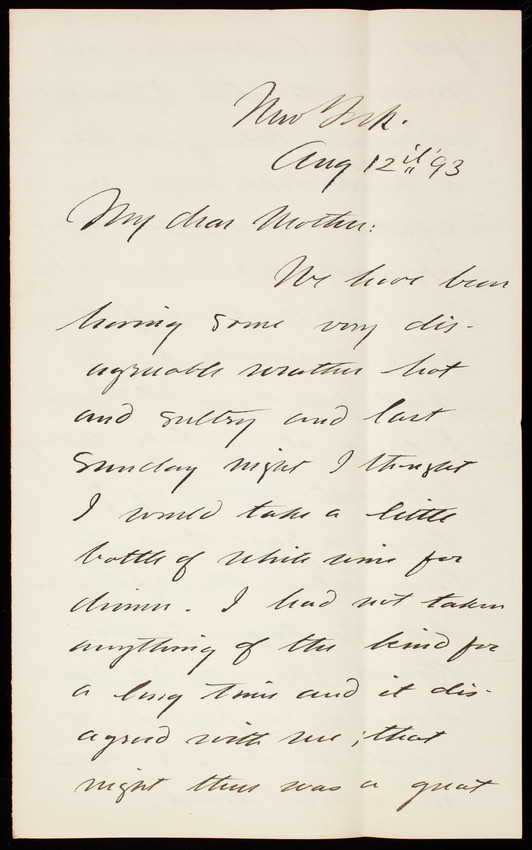 New York.
Aug 12th '93
My dear Mother:
We have been
having some very dis-
agreeable weather hot
and sultry and last
Sunday night I thought
I would take a little
bottle of white wine for
dinner. I had not taken
anything of the kind for
a long time and it dis-
agreed with me; that
night there was a great